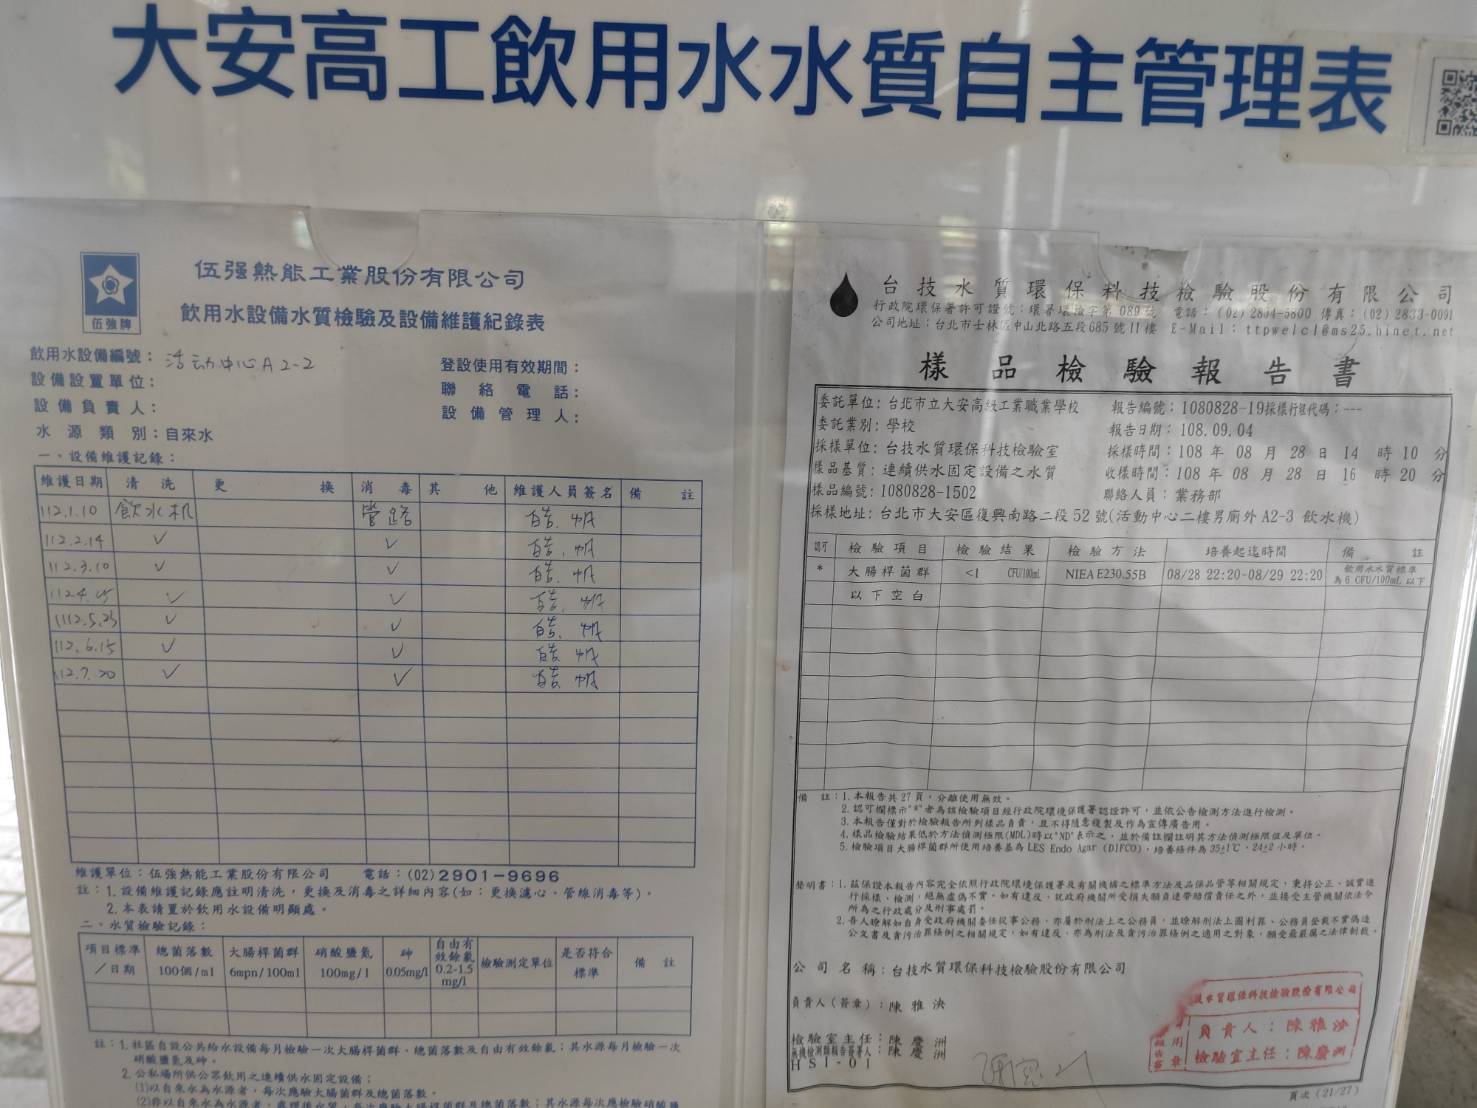 大安高工飲用水水質自主管理表
伍強牌
伍强熱能工業股份有限公司
飲用水設備水質檢驗及設備維護紀錄表
飲用水設備編號：活动中心A2-2
登設使用有效期間：
設備設置單位：
聯絡電話：
設備負責人：
設備管理人：
水源類別：自來水
一、設備維護記錄：
維護日期 清洗 更換 消毒 其他 維護人員簽名 備註
112.1.10 飲水机 管路
112.2.14 ✓ ✓
112.3.10 ✓ ✓
✓ ✓
✓ ✓
112.6.15 ✓ ✓
112.7.20 ✓ ✓
維護單位：伍強熱能工業股份有限公司 電話：(02)2901-9696
註：1.設備維護記錄應註明清洗，更換及消毒之詳細內容(如：更換濾心、管線消毒等)。
2.本表請置於飲用水設備明顯處。
二、水質檢驗記錄：
項目標準／日期 總菌落數 100個/ml 大腸桿菌群 6mpn/100ml 硝酸鹽氮 100mg/l 砷 0.05mg/l 自由有效餘氯 0.2-1.5 mg/l 檢驗測定單位 是否符合標準 備註
註：1.社區自設公共給水設備每月檢驗一次大腸桿菌群、總菌落數及自由有效餘氯；其水源每月檢驗一次
硝酸鹽氮及砷。
2.公私場所供公眾飲用之連續供水固定設備：
(1)以自來水為水源者，每次應驗大腸桿菌群及總菌落數。
台技水質環保科技檢驗股份有限公司
行政院環保署許可證號：環署環檢字第089號 電話：(02)2834-5800 傳真：(02)2833-0091
公司地址：台北市士林區中山北路五段685號11樓 E-Mail：ttpwelcl@ms25.hinet.net
樣品檢驗報告書
委託單位：台北市立大安高級工業職業學校 報告編號：1080828-19採樣行程代碼：---
委託業別：學校 報告日期：108.09.04
採樣單位：台技水質環保科技檢驗室 採樣時間：108年08月28日14時10分
樣品基質：連續供水固定設備之水質 收樣時間：108年08月28日16時20分
樣品編號：1080828-1502 聯絡人員：業務部
採樣地址：台北市大安區復興南路二段52號(活動中心二樓男廁外A2-3 飲水機)
認可 檢驗項目 檢驗結果 檢驗方法 培養起迄時間 備註
* 大腸桿菌群 <1 CFU/100mL NIEA E230.55B 08/28 22:20-08/29 22:20 飲用水水質標準為6 CFU/100mL以下
以下空白
備註：1.本報告共27頁，分離使用無效。
2.認可欄標示"*"者為該檢驗項目經行政院環境保護署認證許可，並依公告檢測方法進行檢測。
3.本報告僅對於檢驗報告所列樣品負責，且不得隨意複製及作為宣傳廣告用。
4.樣品檢驗結果低於方法偵測極限(MDL)時以"ND"表示之，並於備註欄註明其方法偵測極限值及單位。
5.檢驗項目大腸桿菌群所使用培養基為LES Endo Agar (DIFCO)，培養條件為35±1℃，24±2小時。
聲明書：1.茲保證本報告內容完全依照行政院環境保護署及有關機構之標準方法及品保品管等相關規定，秉持公正、誠實進
行採樣、檢測，絕無虛偽不實。如有違反，就政府機關所受損失願負連帶賠償責任之外，並接受主管機關依法令
所為之行政處分及刑事處罰。
2.吾人瞭解如自身受政府機關委任從事公務，亦屬於刑法上之公務員，並瞭解刑法上圖利罪、公務員登載不實偽造
公文書及貪污治罪條例之相關規定，如有違反，亦為刑法及貪污治罪條例之適用之對象，願受最嚴厲之法律制裁。
公司名稱：台技水質環保科技檢驗股份有限公司
負責人(簽章)：陳雅泱
檢驗室主任：陳慶洲
無機檢測類報告簽署人：陳慶洲
HSI-01
技水質環保科技檢驗股份有限公司
負責人：陳雅泱
檢驗室主任：陳慶洲
頁次(21/27)